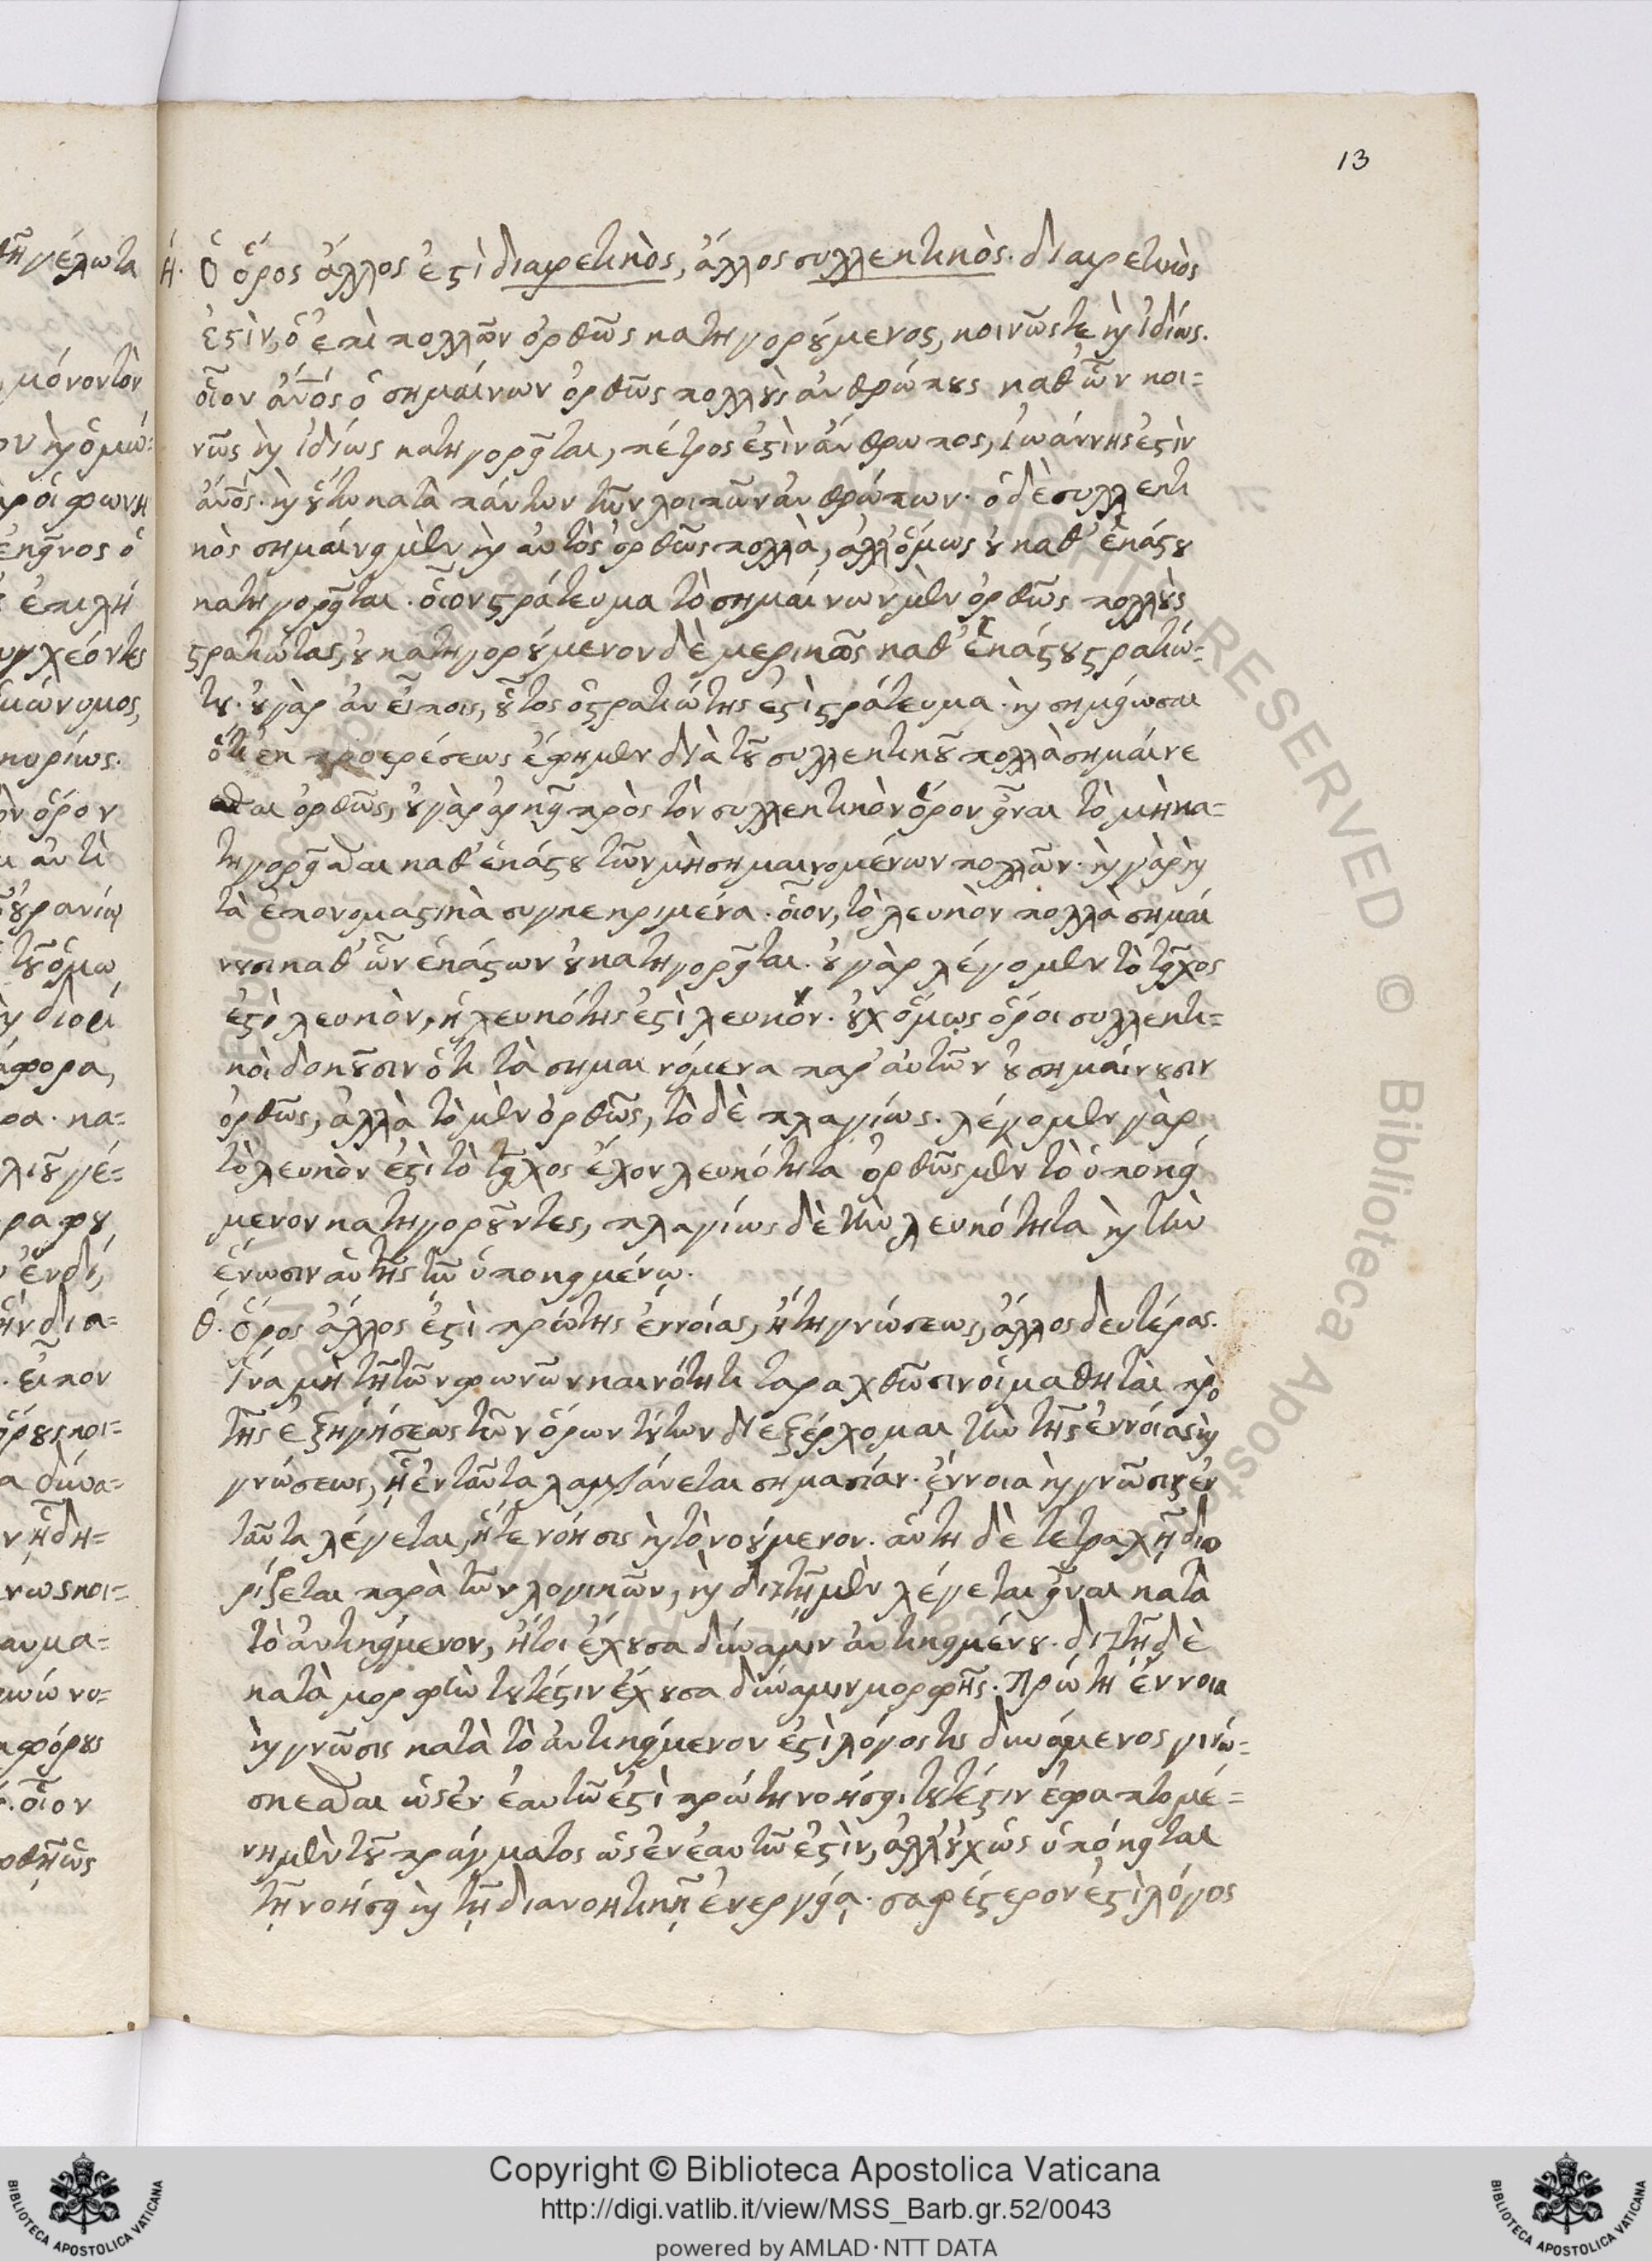 13
ή. Ὁ ὅρος ἄλλος ἐστὶ διαιρετικὸς, ἄλλος συλλεκτικὸς. διαιρετικὸς
ἐστὶν, ὁ ἐπὶ πολλῶν ὀρθῶς κατηγορούμενος, κοινῶς τε καὶ ἰδίως.
οἷον ἄνος ὁ σημαίνων ὀρθῶς πολλοὺς ἀνθρώπους καθ' ὧν κοι=
νῶς καὶ ἰδίως κατηγορεῖται, πέτρος ἐστὶν ἄνθρωπος, ἰωάννης ἐστὶν
ἄνος. καὶ οὕτω κατὰ πάντων τῶν λοιπῶν ἀνθρώπων. ὁ δὲ συλλεκτι
κὸς σημαίνει μὲν καὶ αὐτὸς ὀρθῶς πολλὰ, ἀλλ' ὅμως οὐ καθ' ἑκάστου
κατηγορεῖται. οἷον στράτευμα τὸ σημαίνων μὲν ὀρθῶς πολλοὺς
στρατιώτας, οὐ κατηγορούμενον δὲ μερικῶς καθ' ἑκάστου στρατιώ=
του. οὐ γὰρ ἂν εἴποις, οὗτος ὁ στρατιώτης ἐστὶ στράτευμα. καὶ σημείωσαι
ὅτι ἐκ προερέσεως ἔφημεν διὰ τοῦ συλλεκτικοῦ πολλὰ σημαίνε
σθαι ὀρθῶς, οὐ γὰρ ἀρκεῖ πρὸς τὸν συλλεκτικὸν ὅρον εἶναι τὸ μὴ κα=
τηγορεῖσθαι καθ' ἑκάστου τῶν μὴ σημαινομένων πολλῶν. καὶ γὰρ καὶ
τὰ ἐπονομαστικὰ συγκεκριμένα. οἷον, τὸ λευκὸν πολλὰ σημαί
νουσι καθ' ὧν ἑκάστων οὐ κατηγορεῖται. οὐ γὰρ λέγομεν τὸ τεῖχος
ἐστὶ λευκὸν, ἡ λευκότης ἐστὶ λευκόν. οὐχ ὅμως ὅροι συλλεκτι=
κοὶ δοκοῦσιν ὅτι τὰ σημαινόμενα παρ' αὐτῶν οὐ σημαίνουσιν
ὀρθῶς, ἀλλὰ τὸ μὲν ὀρθῶς, τὸ δὲ πλαγίως. λέγομεν γὰρ
τὸ λευκὸν ἐστὶ τὸ τεῖχος ἔχον λευκότητα ὀρθῶς μὲν τὸ ὑποκεί
μενον κατηγοροῦντες, πλαγίως δὲ τὴν λευκότητα καὶ τὴν
ἕνωσιν αὐτῆς τῷ ὑποκειμένῳ.
θ. Ὅρος ἄλλος ἐστὶ πρώτης ἐννοίας, ἤτη γνώσεως, ἄλλος δευτέρας.
Ἵνα μὴ τῇ τῶν φωνῶν καινότητι ταραχθῶσιν οἱ μαθηταὶ πρὸ
τῆς ἐξηγήσεως τῶν ὅρων τούτων διεξέρχομαι τὴν τῆς ἐννοίας καὶ
γνώσεως, ᾗ ἐνταῦτα λαμβάνεται σημασίαν. ἔννοια καὶ γνῶσις ἐν
ταῦτα λέγεται, ἥτε νόησις καὶ τὸ νούμενον. αὕτη δὲ τετραχῇ διο
ρίζεται παρὰ τῶν λογικῶν, καὶ διττῇ μὲν λέγεται εἶναι κατὰ
τὸ ἀντικείμενον, ἤτοι ἔχουσα δύναμιν ἀντικειμένου. διττῇ δὲ
κατὰ μορφὴν τουτέστιν ἔχουσα δύναμιν μορφῆς. Πρώτη ἔννοια
καὶ γνῶσις κατὰ τὸ ἀντικείμενον ἐστὶ λόγος τις δυνάμενος γινώ=
σκεσθαι ὡς ἐν ἑαυτῷ ἐστὶ πρώτη νοήσει. τουτέστιν ἐφαπτομέ=
νη μὲν τοῦ πράγματος ὡς ἐν ἑαυτῷ ἐστὶν, ἀλλ' οὐχ ὡς ὑπόκειται
τῇ νοήσει καὶ τῇ διανοητικῇ ἐνεργείᾳ. σαφέστερον ἐστὶ λόγος
Copyright © Biblioteca Apostolica Vaticana
http://digi.vatlib.it/view/MSS_Barb.gr.52/0043
powered by AMLAD·NTT DATA